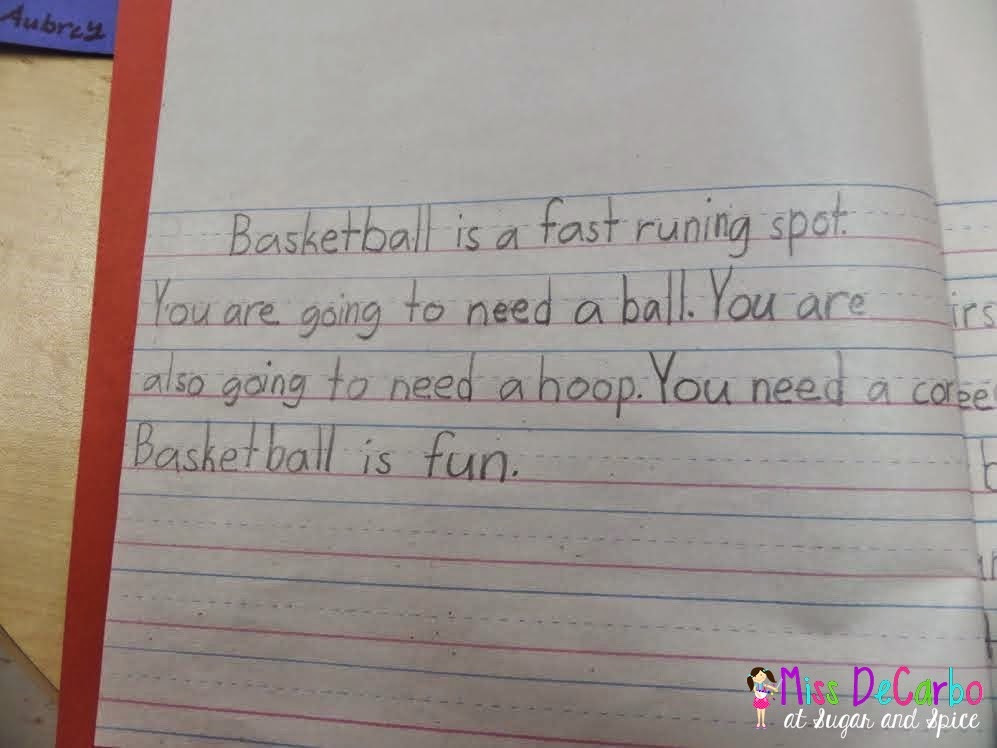 Aubrey
Basketball is a fast runing spot.
You are going to need a ball. You are
also going to need a hoop. You need a
Basketball is fun.
irs
Miss DeCarbo
at Sugar and Spice